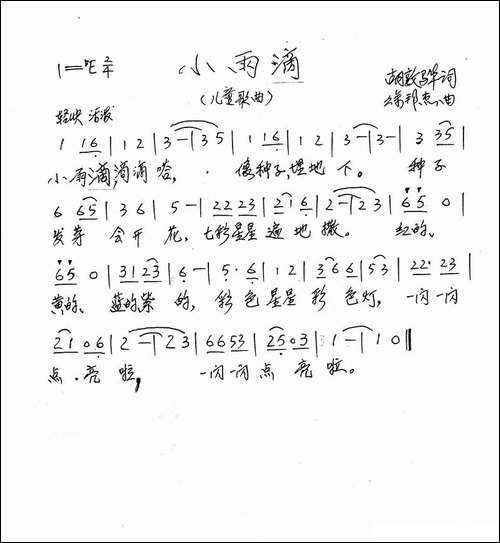 小雨滴
1=♭E 2/4
(儿童歌曲)
胡敦骅词
曲
轻快 活泼
1 16 | 1 2 | 3 — | 3 5 | 1 16 | 1 2 | 3 — | 3 — | 3 35 |
小雨滴,滴滴嗒, 像种子,埋地下。 种子
6 65 | 3 6 | 5 — | 22 23 | 21 6 | 2 — | 2 3 | 65 0 |
发芽 会开 花, 七彩星星遍地撒。 红的、
65 0 | 31 23 | 6 — | 5· 6 | 1 2 | 3 6 6 | 53 | 22· 23 |
黄的、蓝的紫的, 彩色星星彩色灯, 一闪一闪
21 06 | 2 — | 2 3 | 66 53 | 25 03 | 1 — | 1 0 ‖
点·亮啦, 一闪一闪点亮啦。